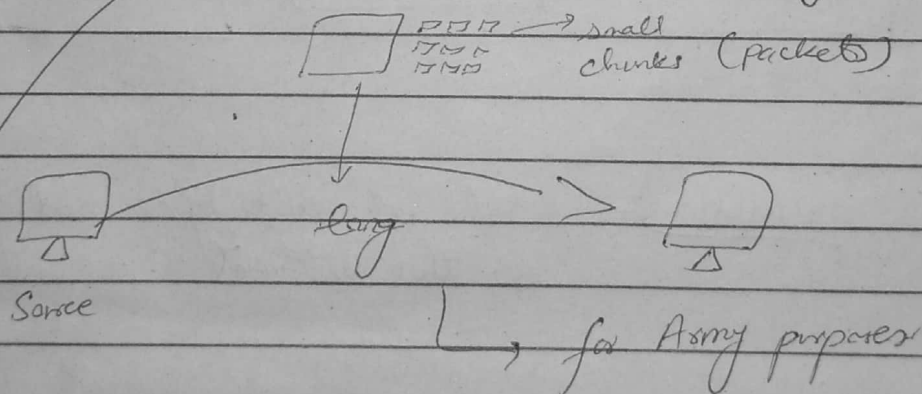 small
chunks (packets)
long
Sorce
for Army purposes